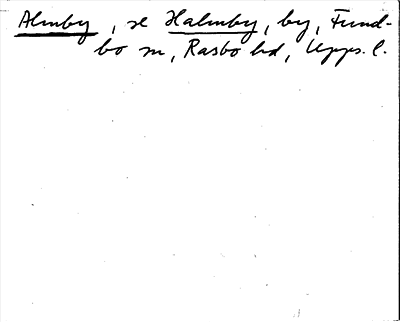 Almby, se Halmby, by, Fund-
bo sn, Rasbo hd, Upps. l.